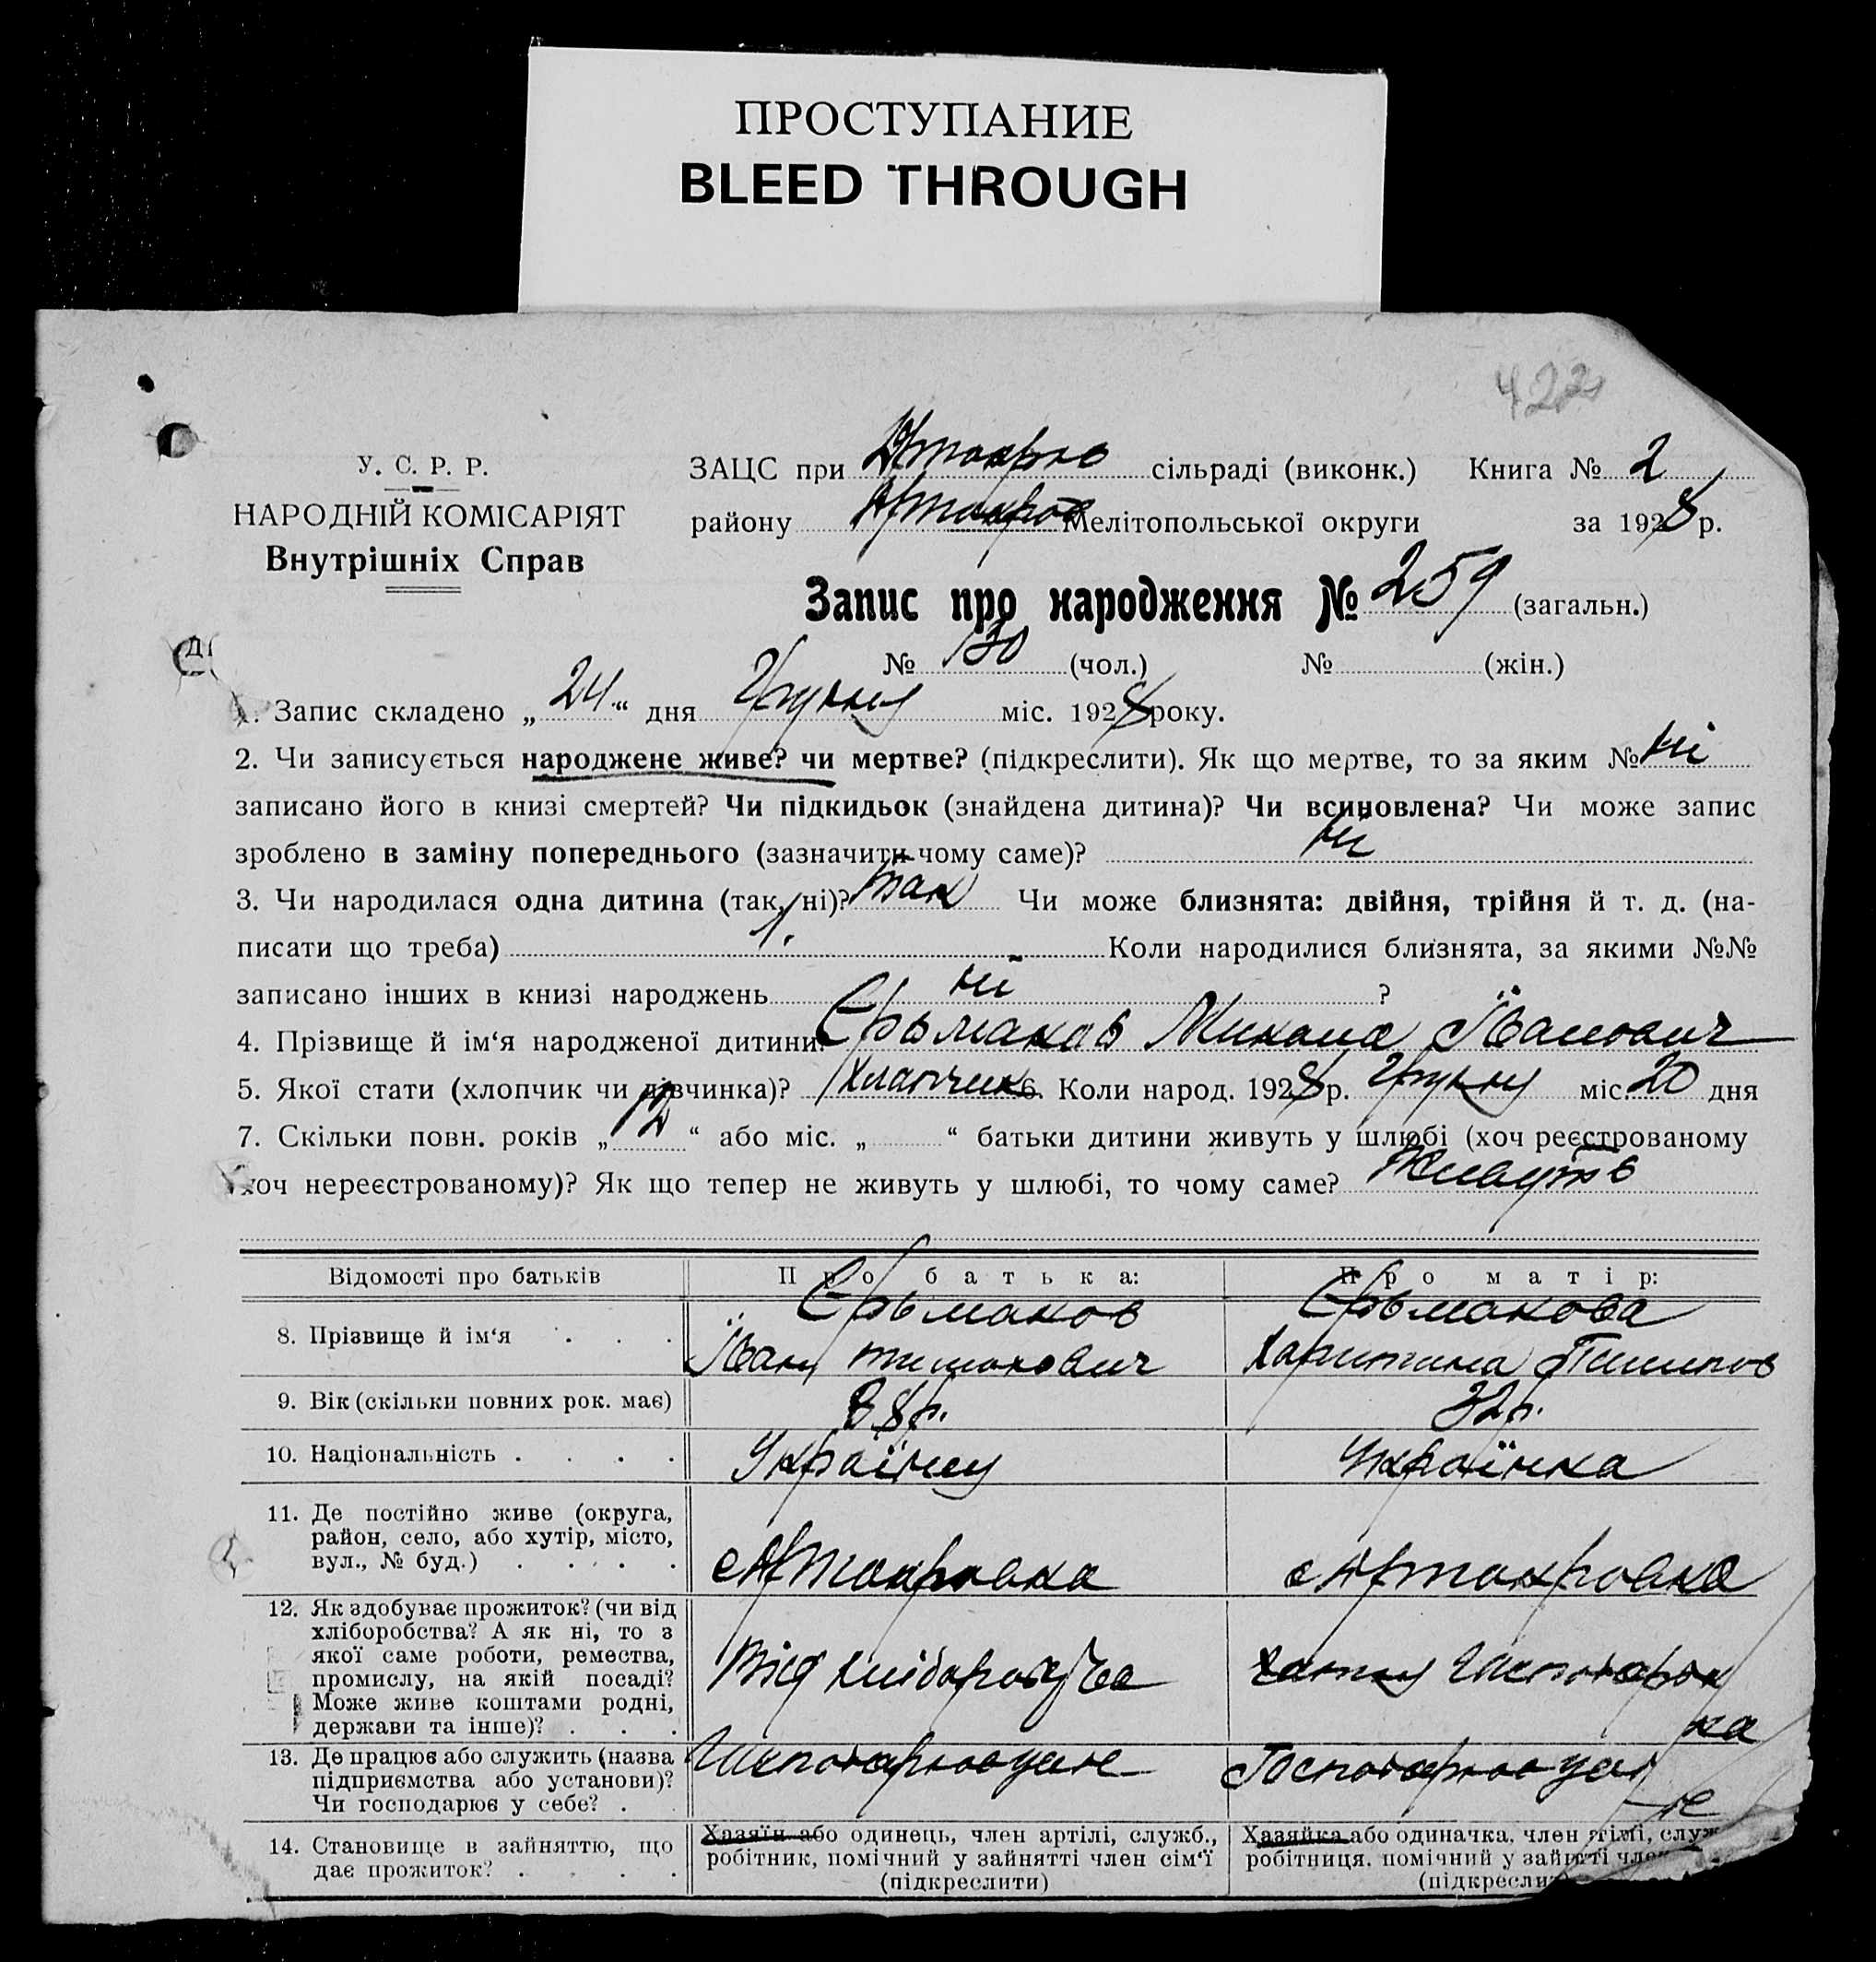 ПРОСТУПАНИЕ
BLEED THROUGH
422
У. С. Р. Р.
НАРОДНІЙ КОМІСАРІЯТ
Внутрішніх Справ
ЗАЦС при сільраді (виконк.) Книга № 2
району Мелітопольської округи за 1928 р.
Запис про народження № 259 (загальн.)
№ 130 (чол.) № (жін.)
1. Запис складено „ 24 “ дня Грудня міс. 1928 року.
2. Чи записується народжене живе? чи мертве? (підкреслити). Як що мертве, то за яким № ні
записано його в книзі смертей? Чи підкидьок (знайдена дитина)? Чи всиновлена? Чи може запис
зроблено в заміну попереднього (зазначити чому саме)? ні
3. Чи народилася одна дитина (так, ні)? так Чи може близнята: двійня, трійня й т. д. (на-
писати що треба) 1. Коли народилися близнята, за якими №№
записано інших в книзі народжень ні ?
4. Прізвище й ім‘я народженої дитини Єрьмаков Микола Іванович
5. Якої стати (хлопчик чи дівчинка)? Хлапчик 6. Коли народ. 1928 р. Грудня міс. 20 дня
7. Скільки повн. років „ 12 “ або міс. „ “ батьки дитини живуть у шлюбі (хоч реєстрованому
хоч нереєстрованому)? Як що тепер не живуть у шлюбі, то чому саме? Живуть
Відомості про батьків Про батька: Про матір:
8. Прізвище й ім‘я Єрьмаков Єрьмакова
Іван Харитина
9. Вік (скільки повних рок. має) 38 р. 32 р.
10. Національність Українец Українка
11. Де постійно живе (округа,
район, село, або хутір, місто,
вул., № буд.)
12. Як здобуває прожиток? (чи від
хліборобства? А як ні, то з
якої саме роботи, ремества,
промислу, на якій посаді?
Може живе коштами родні,
держави та інше)?
Від хліборобства
13. Де працює або служить (назва
підприємства або установи)?
Чи господарює у себе?
14. Становище в зайняттю, що
дає прожиток?
Хазяїн або одинець, член артілі, служб.,
робітник, помічний у зайнятті член сім‘ї
(підкреслити)
Хазяйка або одиначка, член
робітниця, помічний у зайнятті